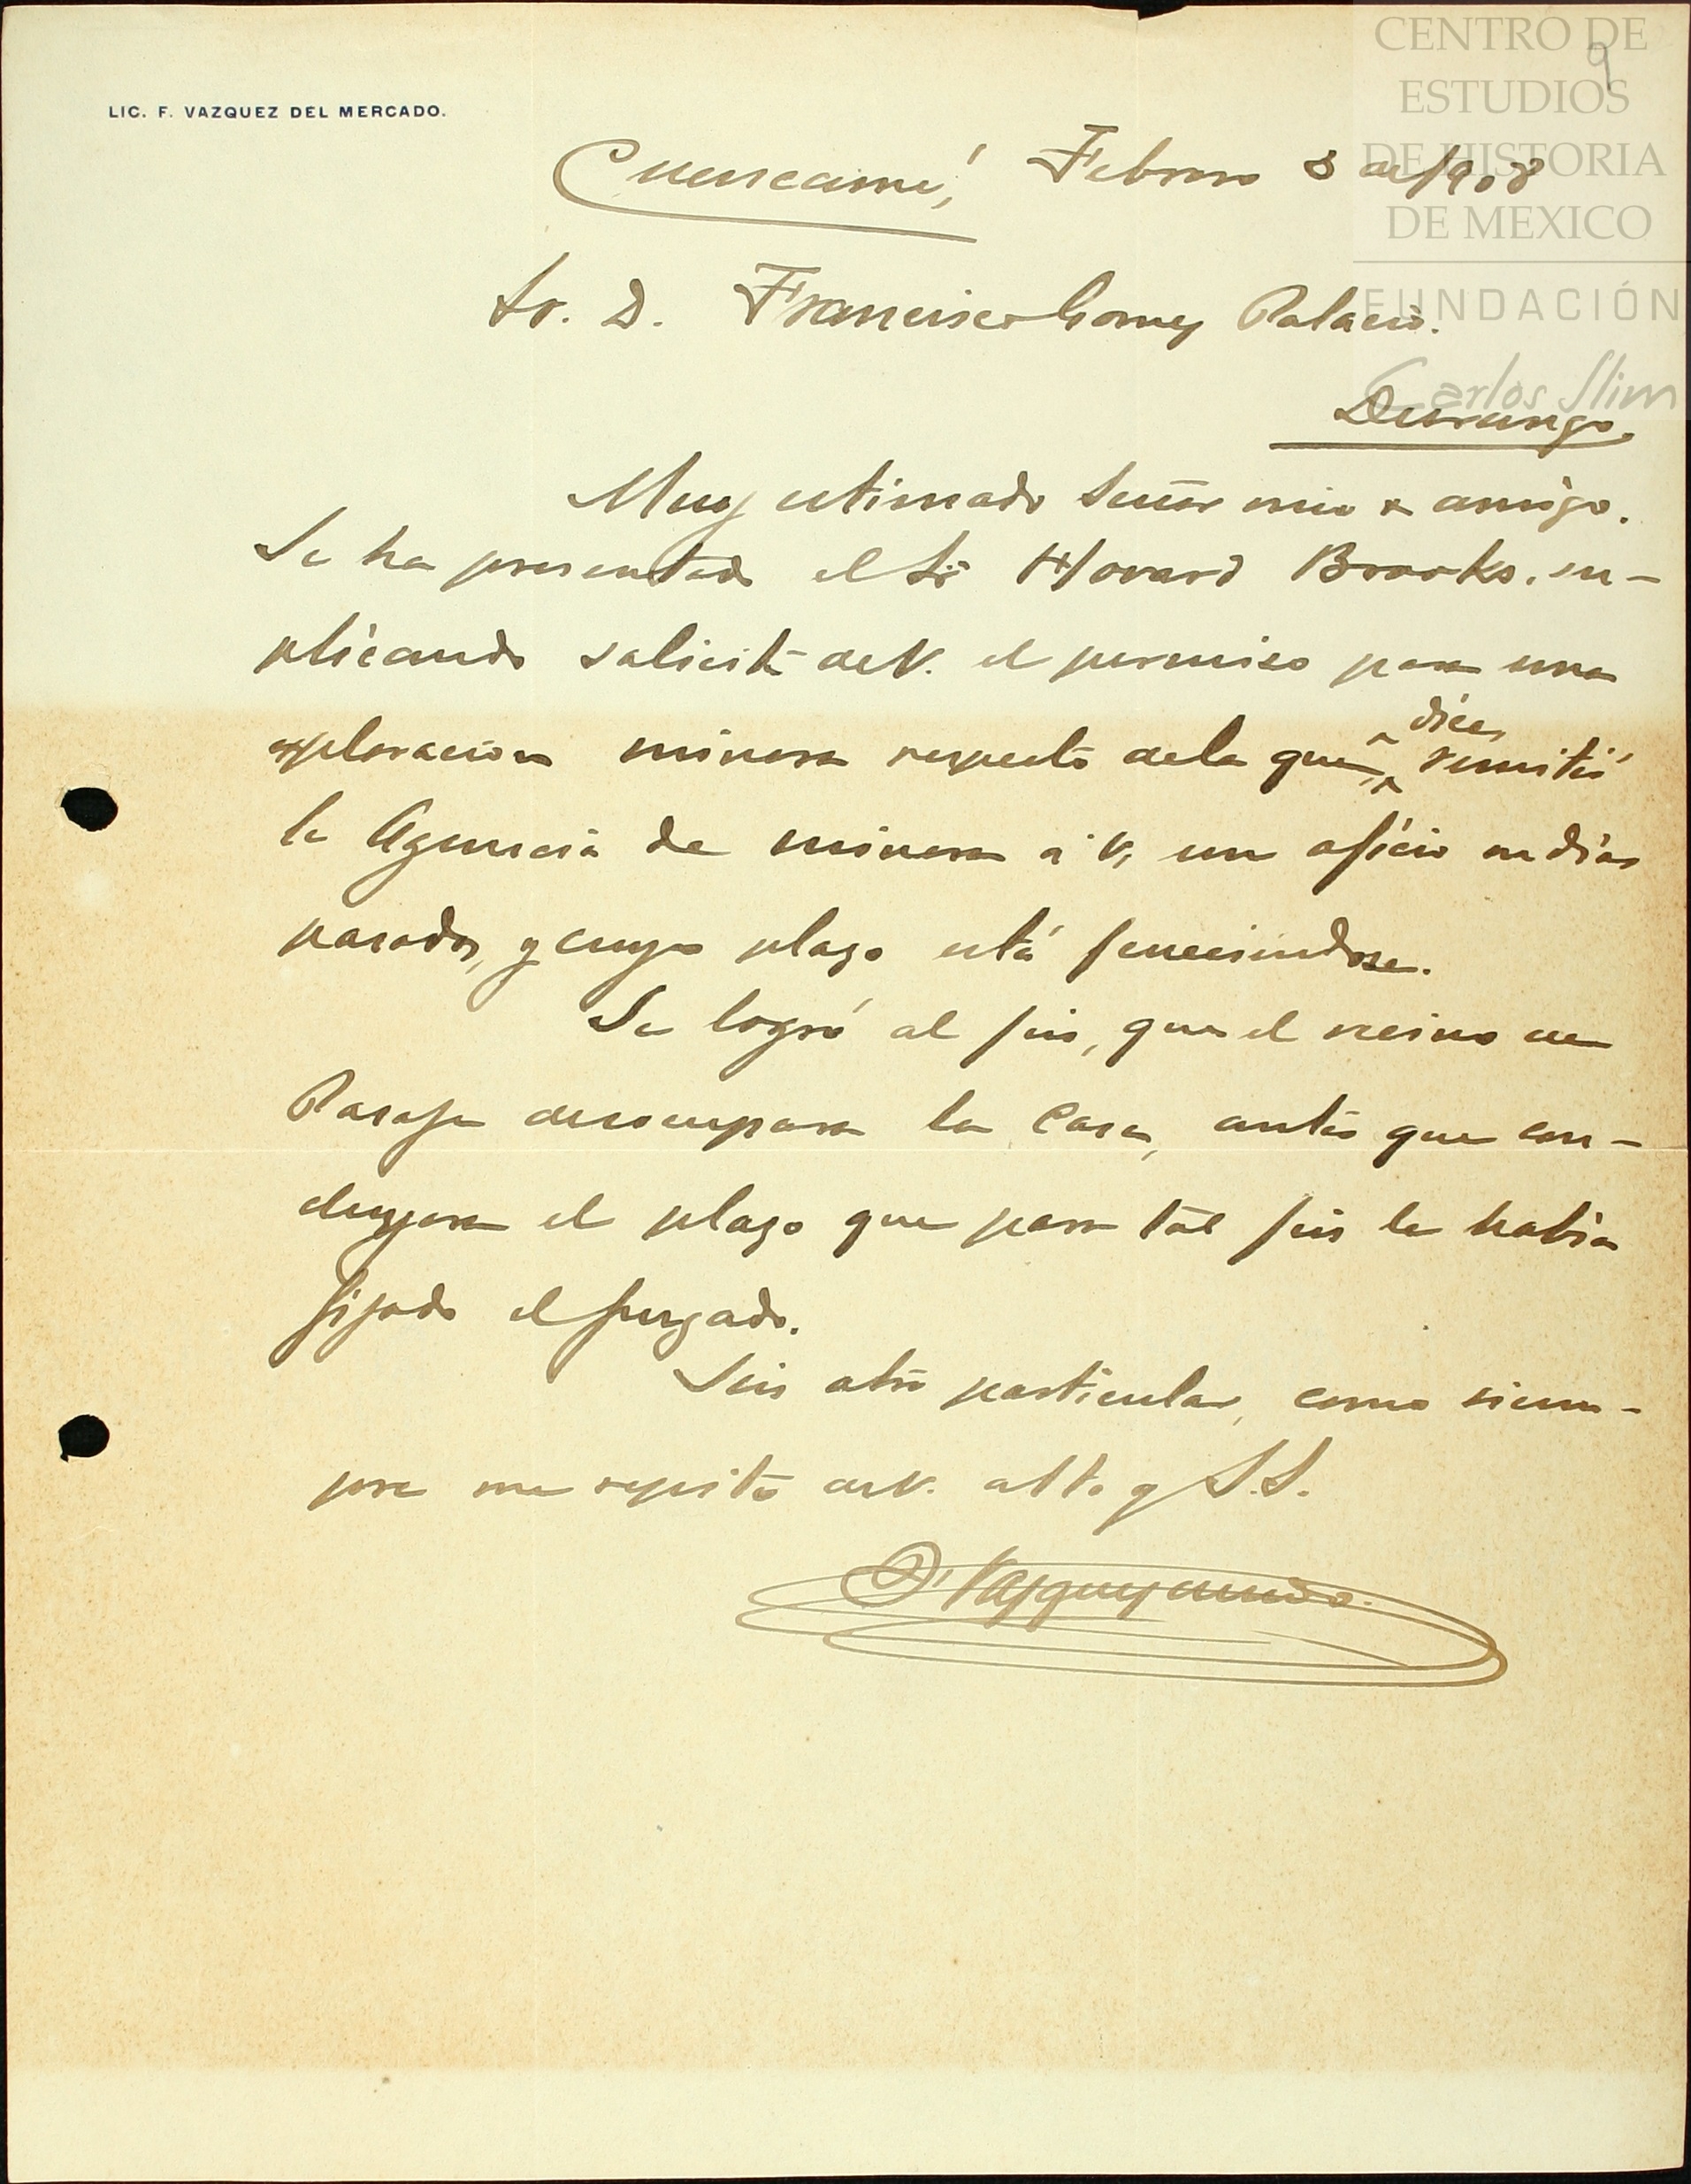 CENTRO DE
ESTUDIOS
DE HISTORIA
DE MEXICO
FUNDACIÓN
Carlos Slim
9
LIC. F. VAZQUEZ DEL MERCADO.
Cuencamé, Febrero 8 de 1908
Sr. D. Francisco Gomez Palacio.
Durango.
Muy estimado Señor mio y amigo.
Se ha presentado el Sr Hovard Brooks, su-
plicando solicite de V. el permiso para una
exploracion minera respecto de la que dice, remitió
la Agencia de minera á V, un oficio en dias
pasados, y cuyo plazo está feneciendose.
Se logró al fin, que el vecino de
Pasaje desocupara la casa, antes que con-
cluyera el plazo que para tal fin le habia
fijado el Juzgado.
Sin otro particular, como siem-
pre me repito de V. atto. y S.S.